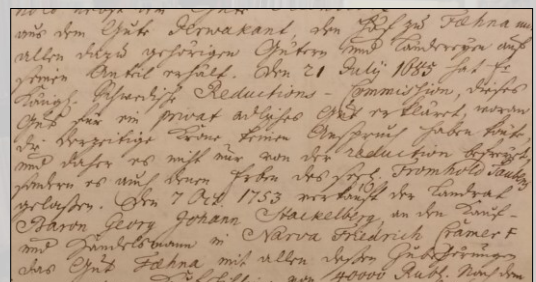 aus dem Gute Jerwakant, den Hof zu Fæhna mit
allen dazu gehörigen Gütern und Landereyen auf
seinen Anteil erhält. Den 21 July 1685 hat die
Königl. Schwedische Reductions-Commission, dieses
Gut für ein privat adliches Gut erkläret, woran
die derzeitige Krone keinen Anspruch haben
und daher es nicht nur von der reduction befreyet,
sondern es auch denen Erben des seel. Fromhold Tauben
gelassen. Den 7 Oct. 1753 verkauft der Landrat
Baron Georg Johann Stackelberg, an den Kauf-
und Handelsmann in Narva Friedrich Cramer
das Gut Fæhna mit allen dessen Zubehörungen
von 40000 Rubl. Nach dem